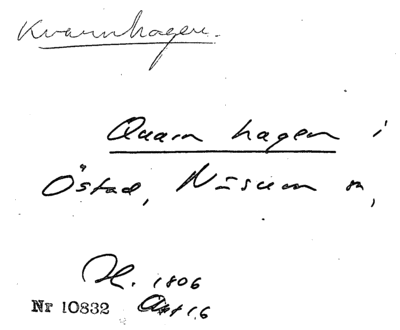 Kvarnhagen.
Quarn hagen i
Östad, Näsum sn,
H. 1806
Nr 10832 Akt 16